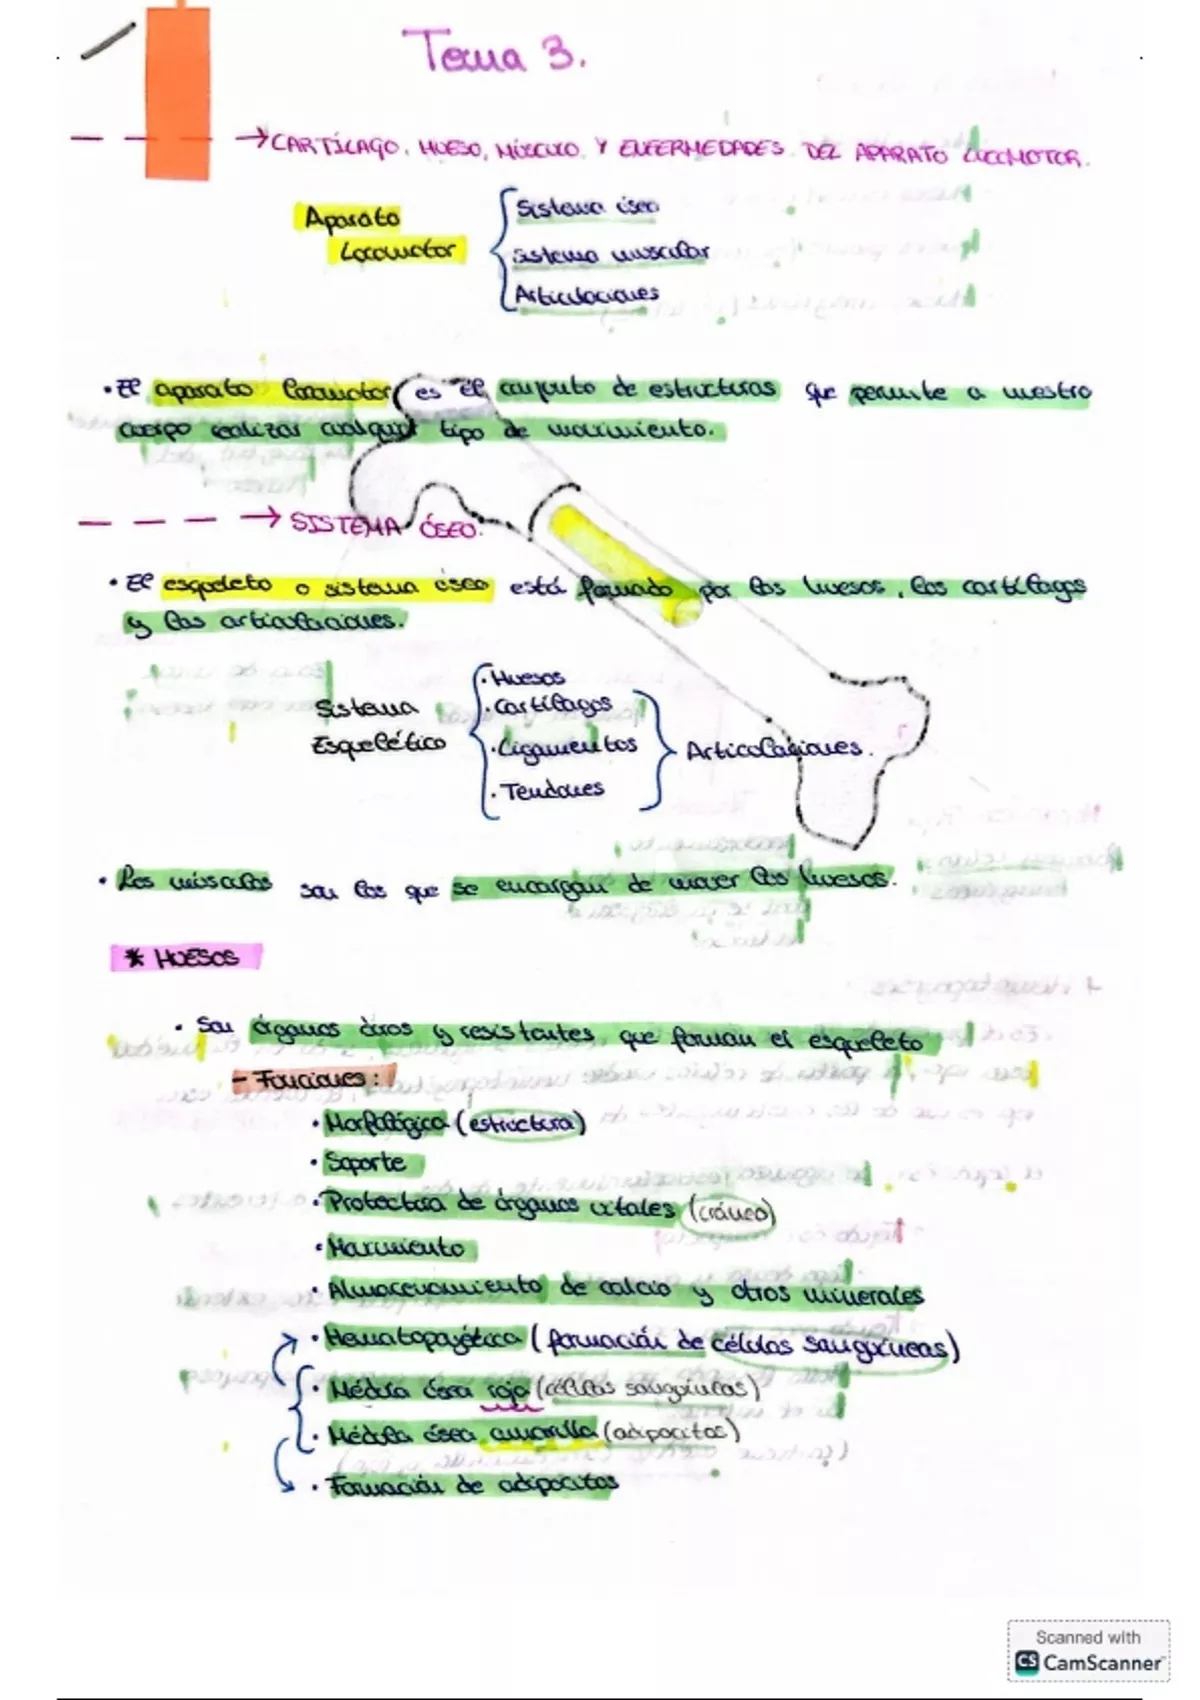 Tema 3.
→ CARTÍLAGO, HUESO, MÚSCULO, Y ENFERMEDADES DEL APARATO LOCOMOTOR.
Aparato
Locomotor
Sistema óseo
Sistema muscular
Articulaciones
• El aparato locomotor es el conjunto de estructuras que permite a nuestro
cuerpo realizar cualquier tipo de movimiento.
→ SISTEMA ÓSEO.
• El esqueleto o sistema óseo está formado por los huesos, los cartílagos
y las articulaciones.
Sistema
Esquelético
· Huesos
· Cartílagos
· Ligamentos
· Tendones
Articulaciones.
• Los músculos son los que se encargan de mover los huesos.
* HUESOS
• Son órganos duros y resistentes que forman el esqueleto
- Funciones:
• Morfológica (estructura)
• Soporte
• Protectora de órganos vitales (cráneo)
• Movimiento
• Almacenamiento de calcio y otros minerales
• Hematopoyética (formación de células sanguíneas)
• Médula ósea roja (células sanguíneas)
• Médula ósea amarilla (adipocitos)
• Formación de adipocitos
Scanned with
CS CamScanner